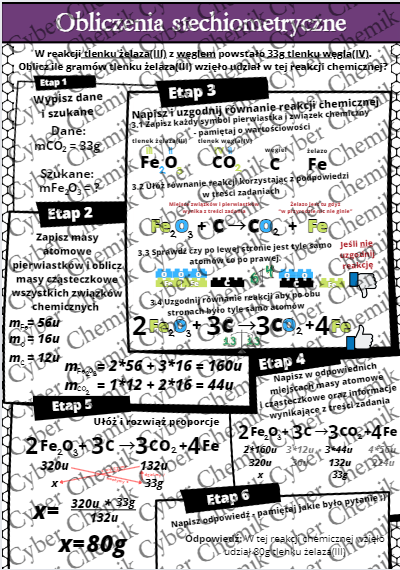 Obliczenia stechiometryczne
W reakcji tlenku żelaza(III) z węglem powstało 33g tlenku węgla(IV).
Oblicz ile gramów tlenku żelaza(III) wzięło udział w tej reakcji chemicznej?
Etap 1
Wypisz dane
i szukane
Dane:
mCO₂ = 33g
Szukane:
mFe₂O₃ = ?
Etap 2
Zapisz masy
atomowe
pierwiastków i oblicz
masy cząsteczkowe
wszystkich związków
chemicznych
= 56u
= 16u
= 12u
= 2*56 + 3*16 = 160u
= 1*12 + 2*16 = 44u
Etap 3
Napisz i uzgodnij równanie reakcji chemicznej
3.1 Zapisz każdy symbol pierwiastka i związek chemiczny
- pamiętaj o wartościowości
tlenek żelaza(III) tlenek węgla(IV) węgiel żelazo
Fe₂O₃ CO₂ C Fe
3.2 Ułóż równanie reakcji korzystając z podpowiedzi
w treści zadaniach
Fe₂O₃ + C → CO₂ + Fe
3.3 Sprawdź czy po lewej stronie jest tyle samo
atomów co po prawej:
Jeśli nie
uzgodnij
reakcję
3.4 Uzgodnij równanie reakcji aby po obu
stronach było tyle samo atomów
2Fe₂O₃ + 3C → 3CO₂ + 4Fe
Etap 4
Napisz w odpowiednich
miejscach masy atomowe
i cząsteczkowe oraz informacje
wynikające z treści zadania
2Fe₂O₃ + 3C → 3CO₂ + 4Fe
2*160u 3*12u 3*44u 4*56u
320u 36u 132u 224u
x 33g
Etap 5
Ułóż i rozwiąż proporcje
2Fe₂O₃ + 3C → 3CO₂ + 4Fe
320u 132u
x 33g
x = 320u * 33g
132u
x=80g
Etap 6
Napisz odpowiedź - pamiętaj jakie było pytanie :)
Odpowiedź: W tej reakcji chemicznej wzięło
udział 80g tlenku żelaza(III)
Cyber Chemik